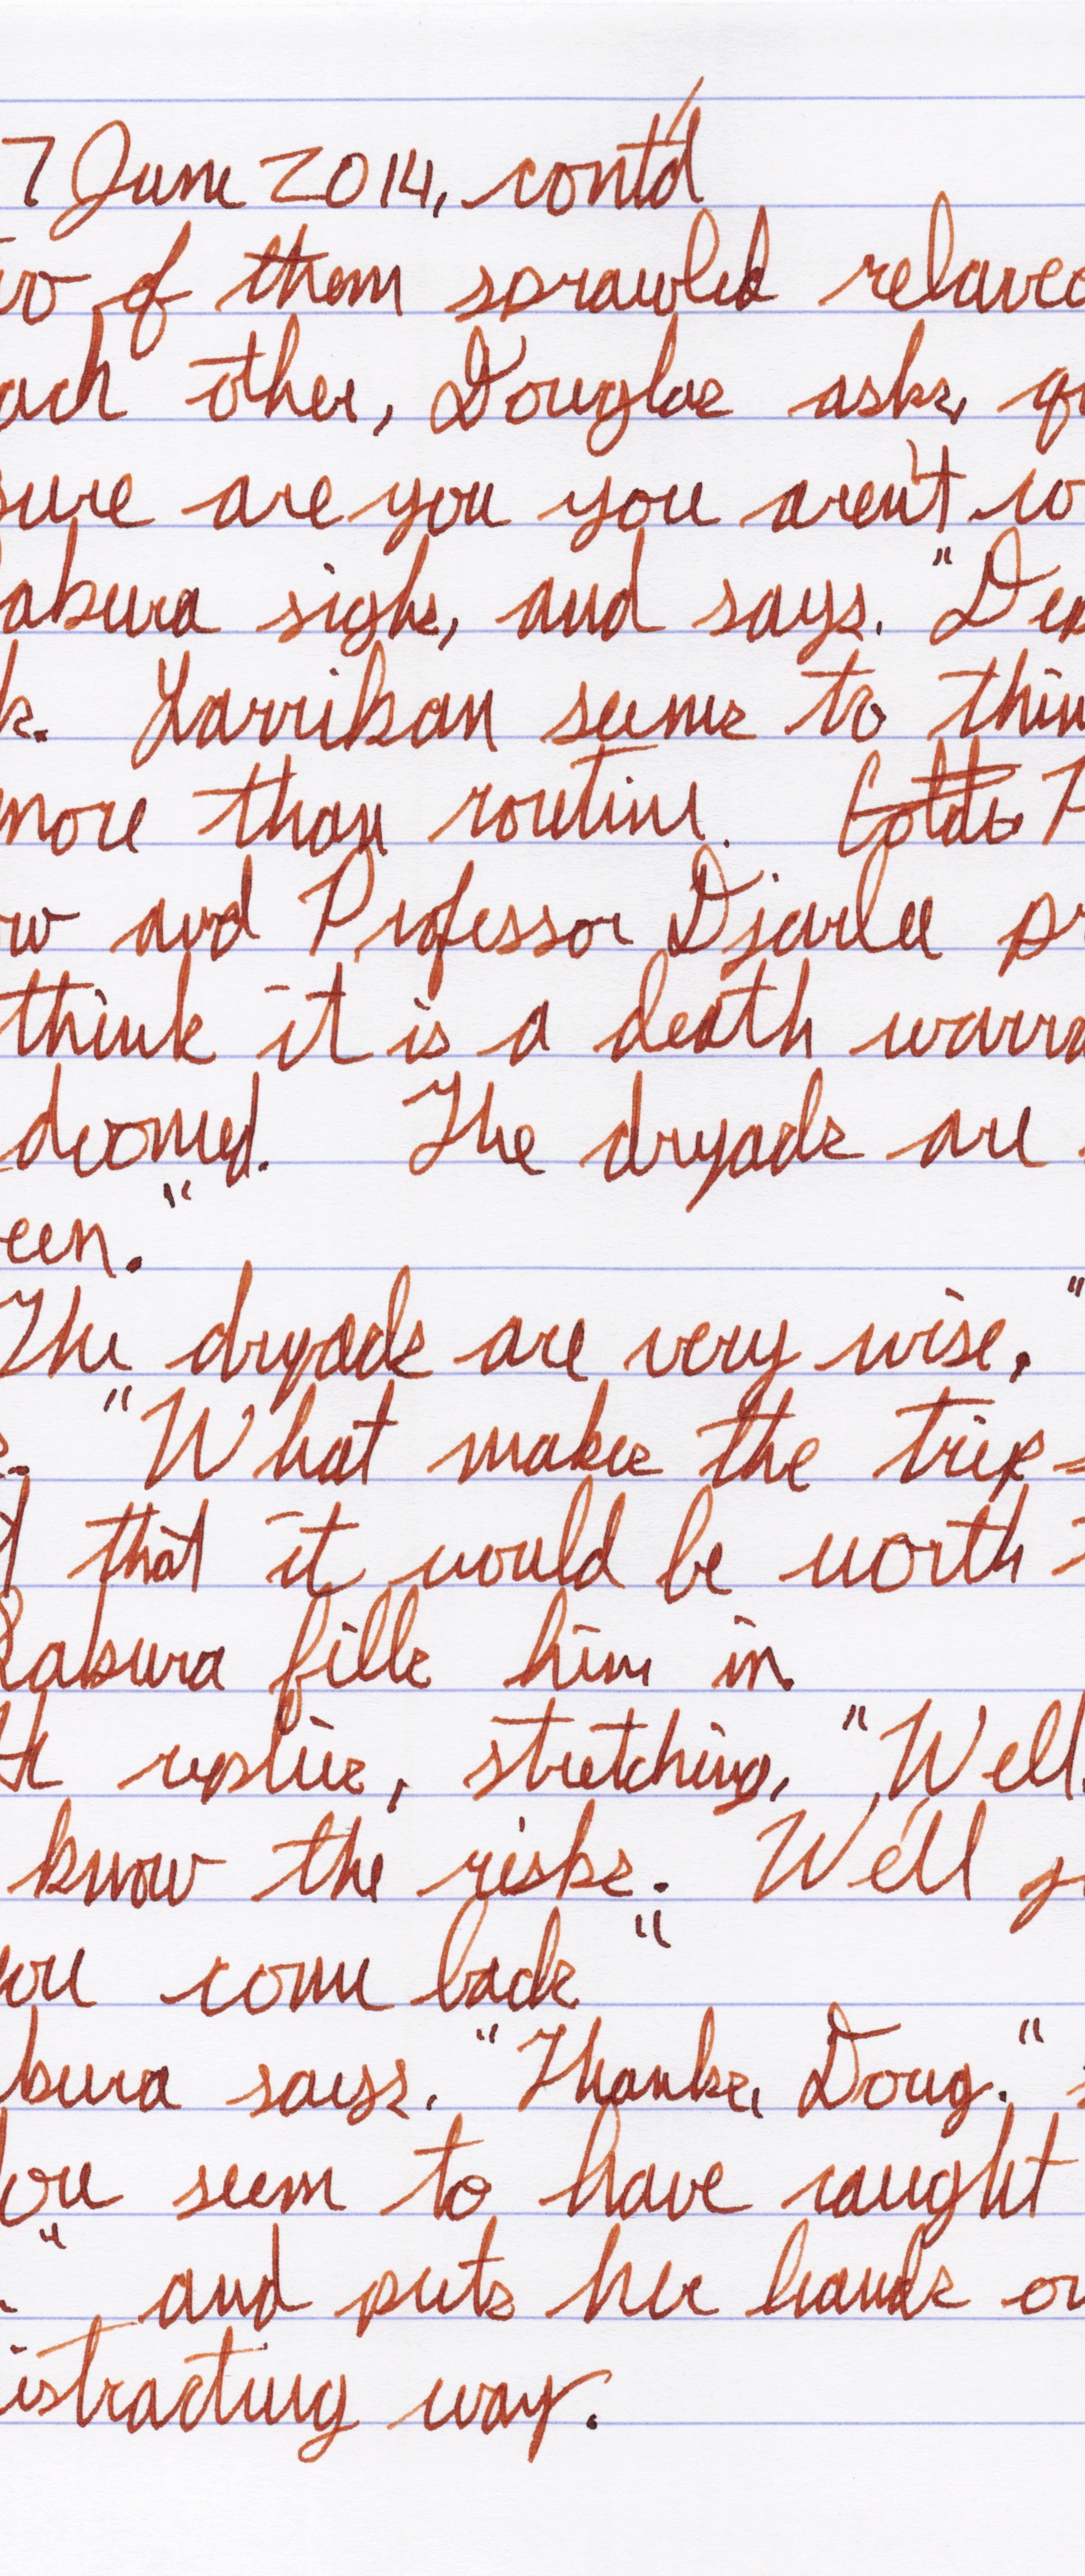 7 June 2014, cont'd
of them sprawled relaxed
ach other, Douglas asks, qu
sure are you you aren't wo
akura sighs, and says. "Dep
k. Larrikan seems to thin
more than routine.
w and Professor Djarlee pr
think it is a death warra
doomed. The dryads are
een."
The dryads are very wise, "
s. "What makes the trip
that it would be worth
Sakura fills him in.
replies, stretching, "Well,
know the risks. We'll
you come back"
kura says. "Thanks, Doug."
You seem to have caught
." and puts her hands on
istracting way.